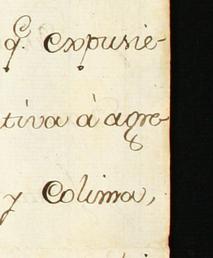 q.e expusie-
tiva à agre
y Colima,